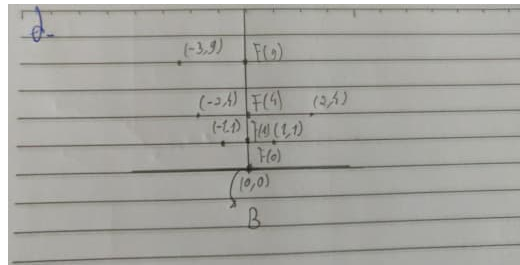 d-
(-3,9) F(9)
(-2,4) F(4) (2,4)
(-1,1) F(1) (1,1)
F(0)
(0,0)
B